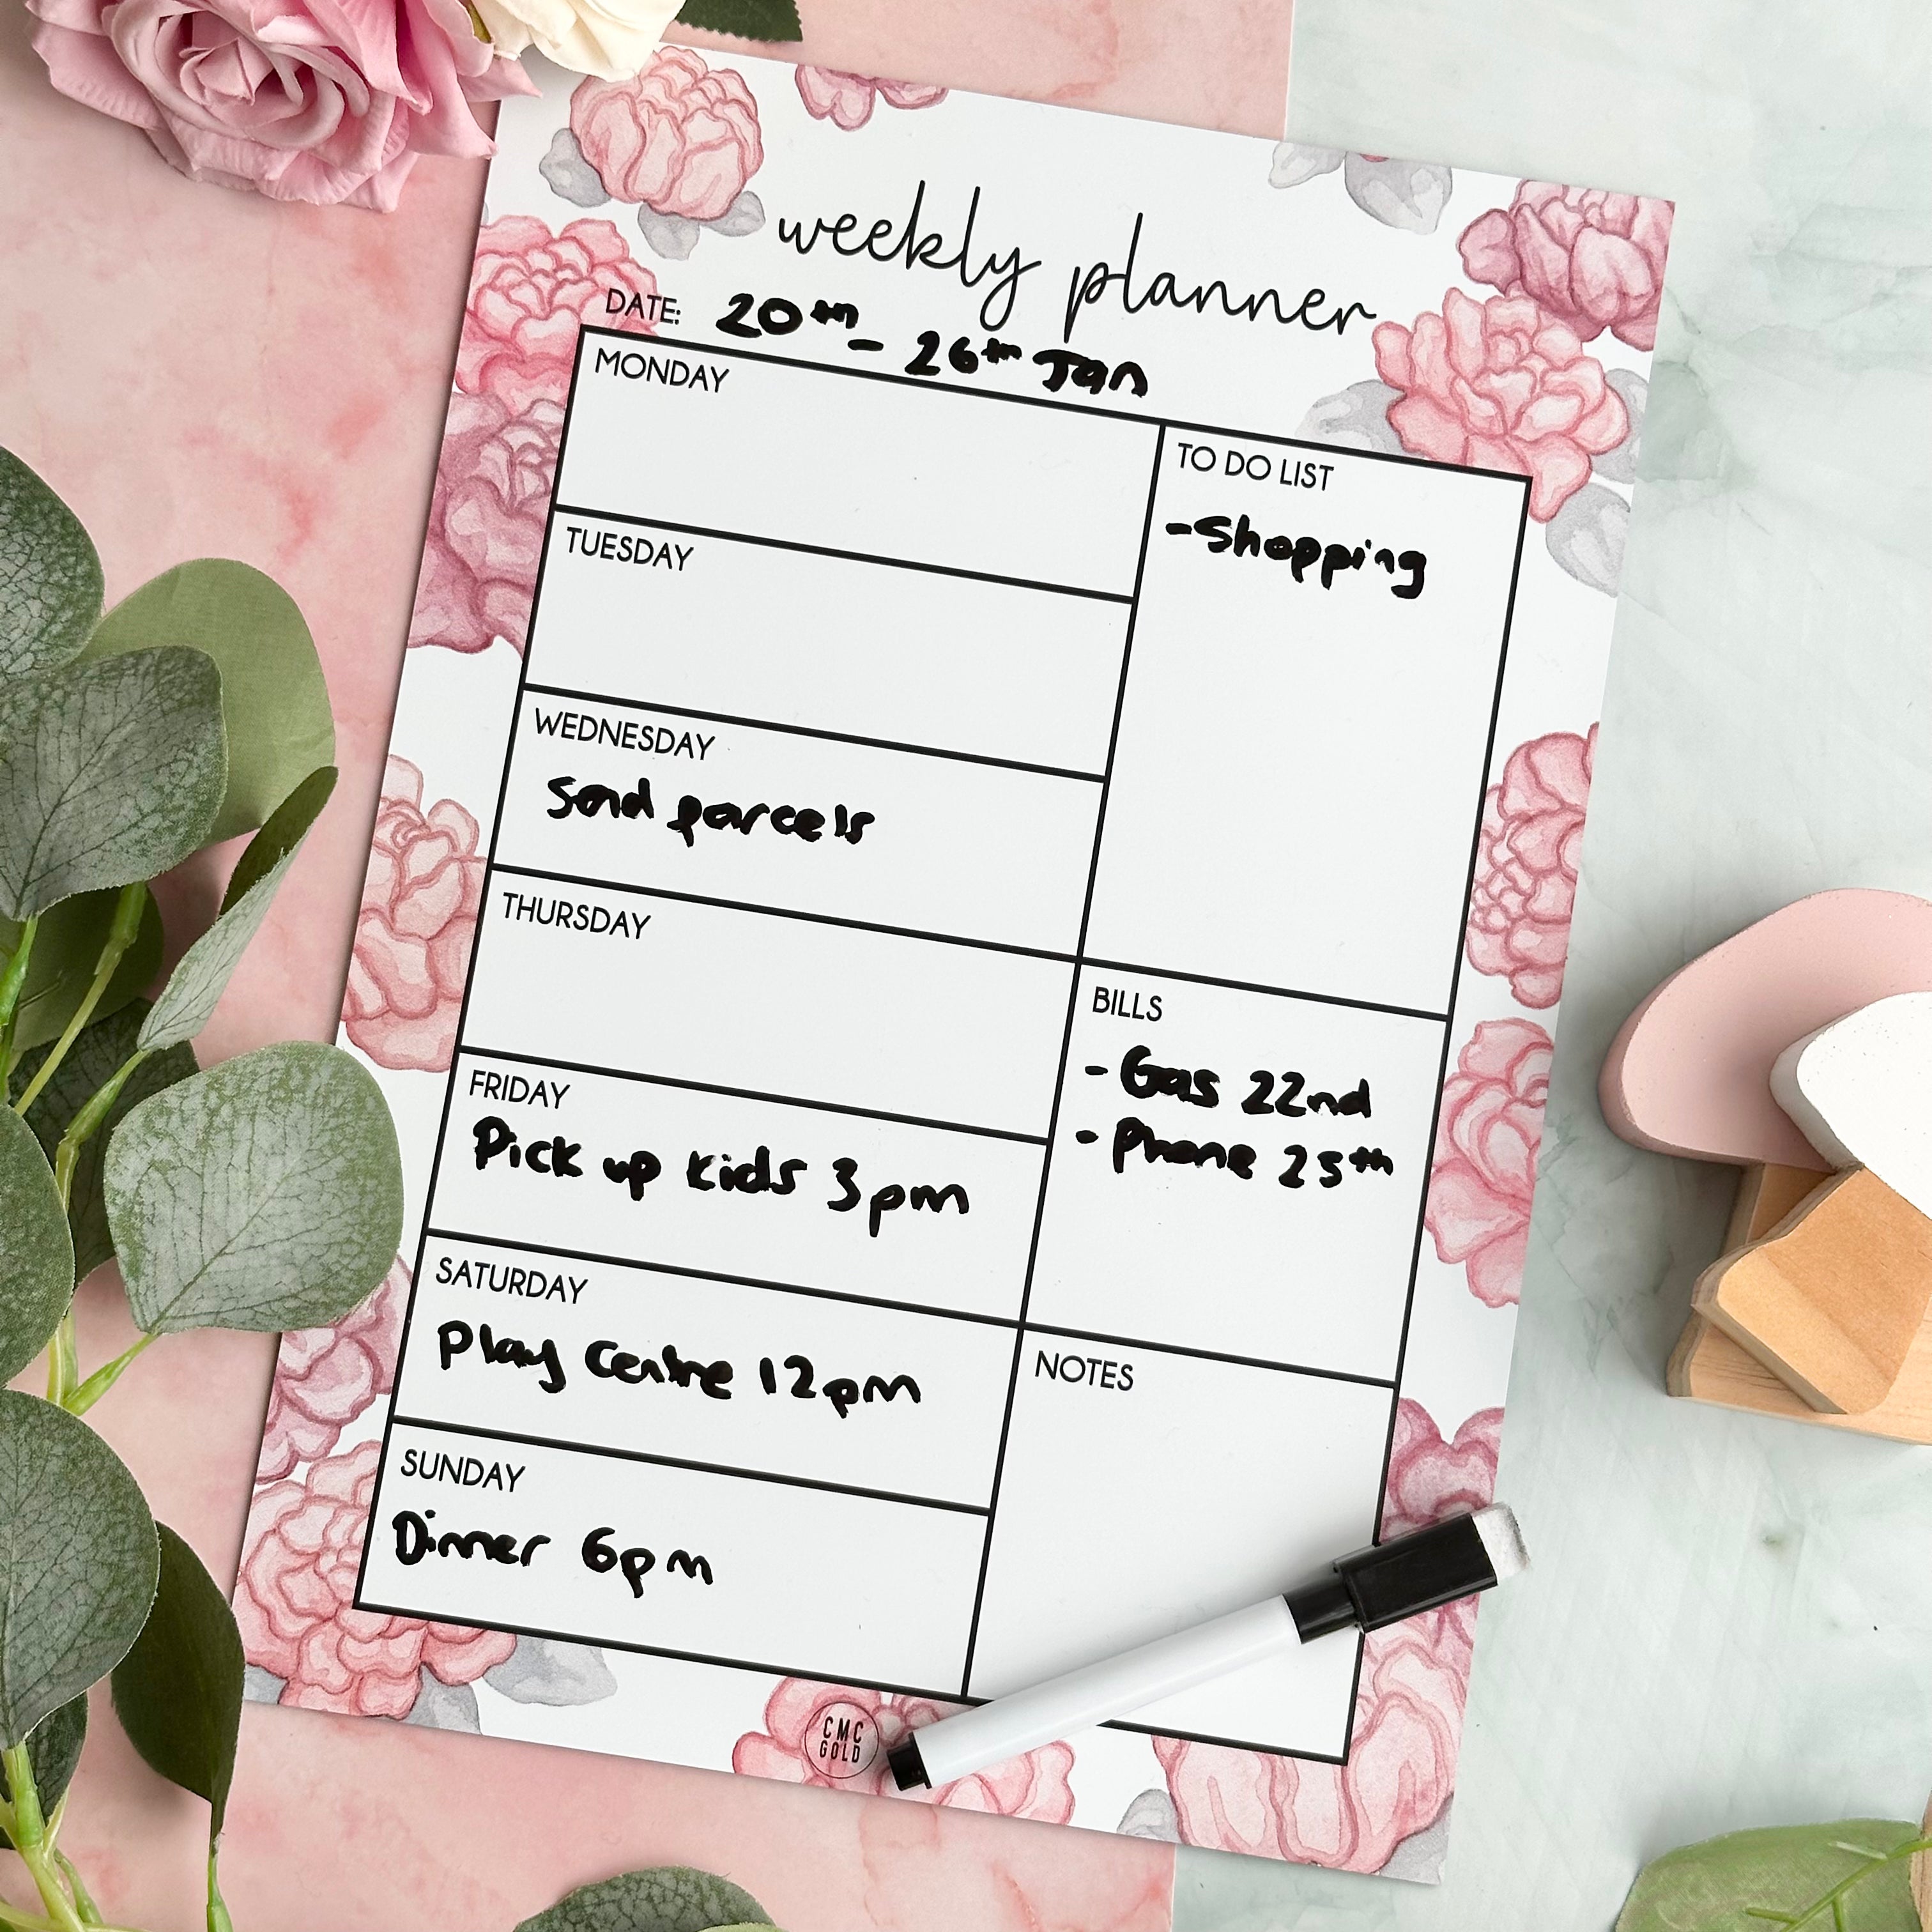 weekly planner
DATE: 20th - 26th Jan
MONDAY
TUESDAY
WEDNESDAY
Send parcels
THURSDAY
FRIDAY
Pick up kids 3pm
SATURDAY
Play Centre 12pm
SUNDAY
Dinner 6pm
TO DO LIST
-Shopping
BILLS
- Gas 22nd
- Phone 25th
NOTES
CMC
GOLD